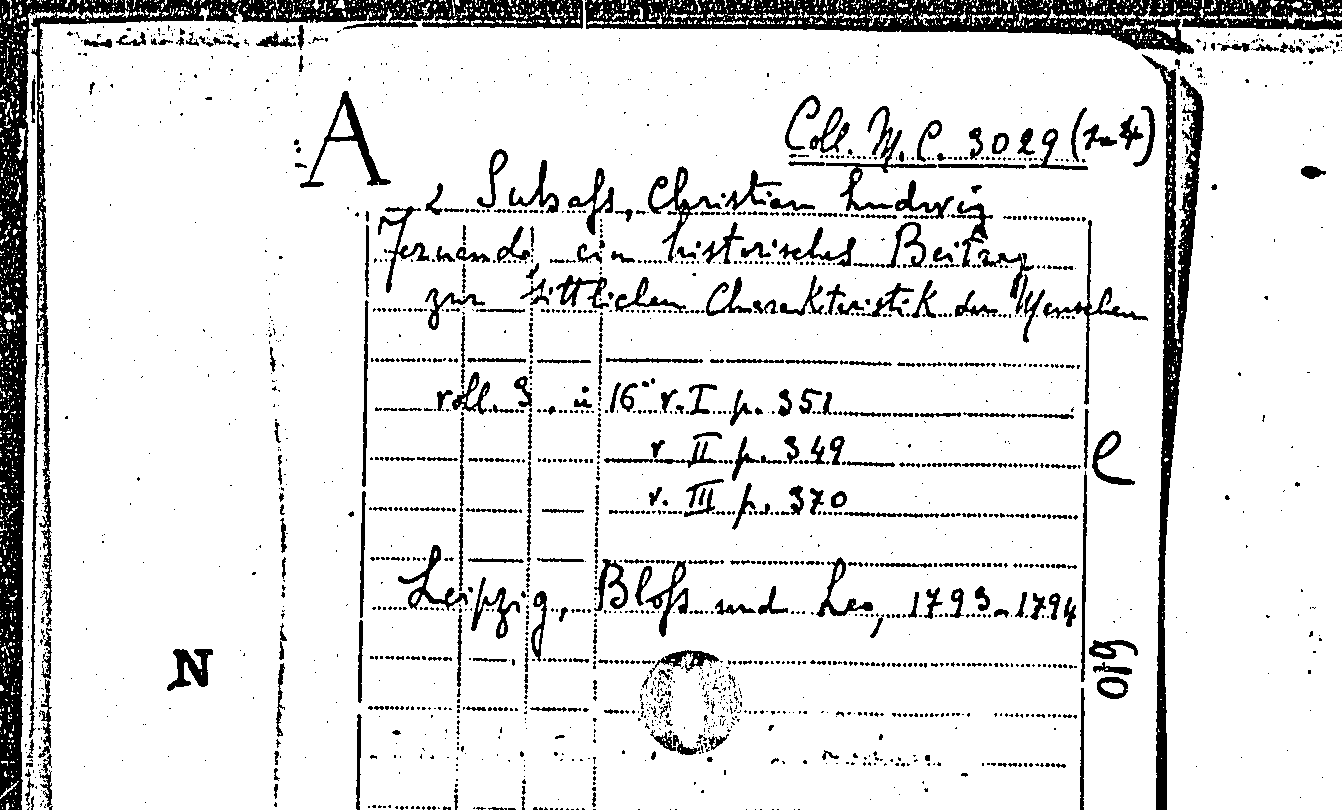 A
Coll. M. C. 3029 (1-4)
Christian Ludwig
Fernando, ein historisches Beitrag
zur sittlichen Charakteristik des Menschen
voll. 3, in 16° v. I p. 351
v. II p. 349
v. III p. 370
e
Leipzig, Bloß und Leo, 1793-1794
N